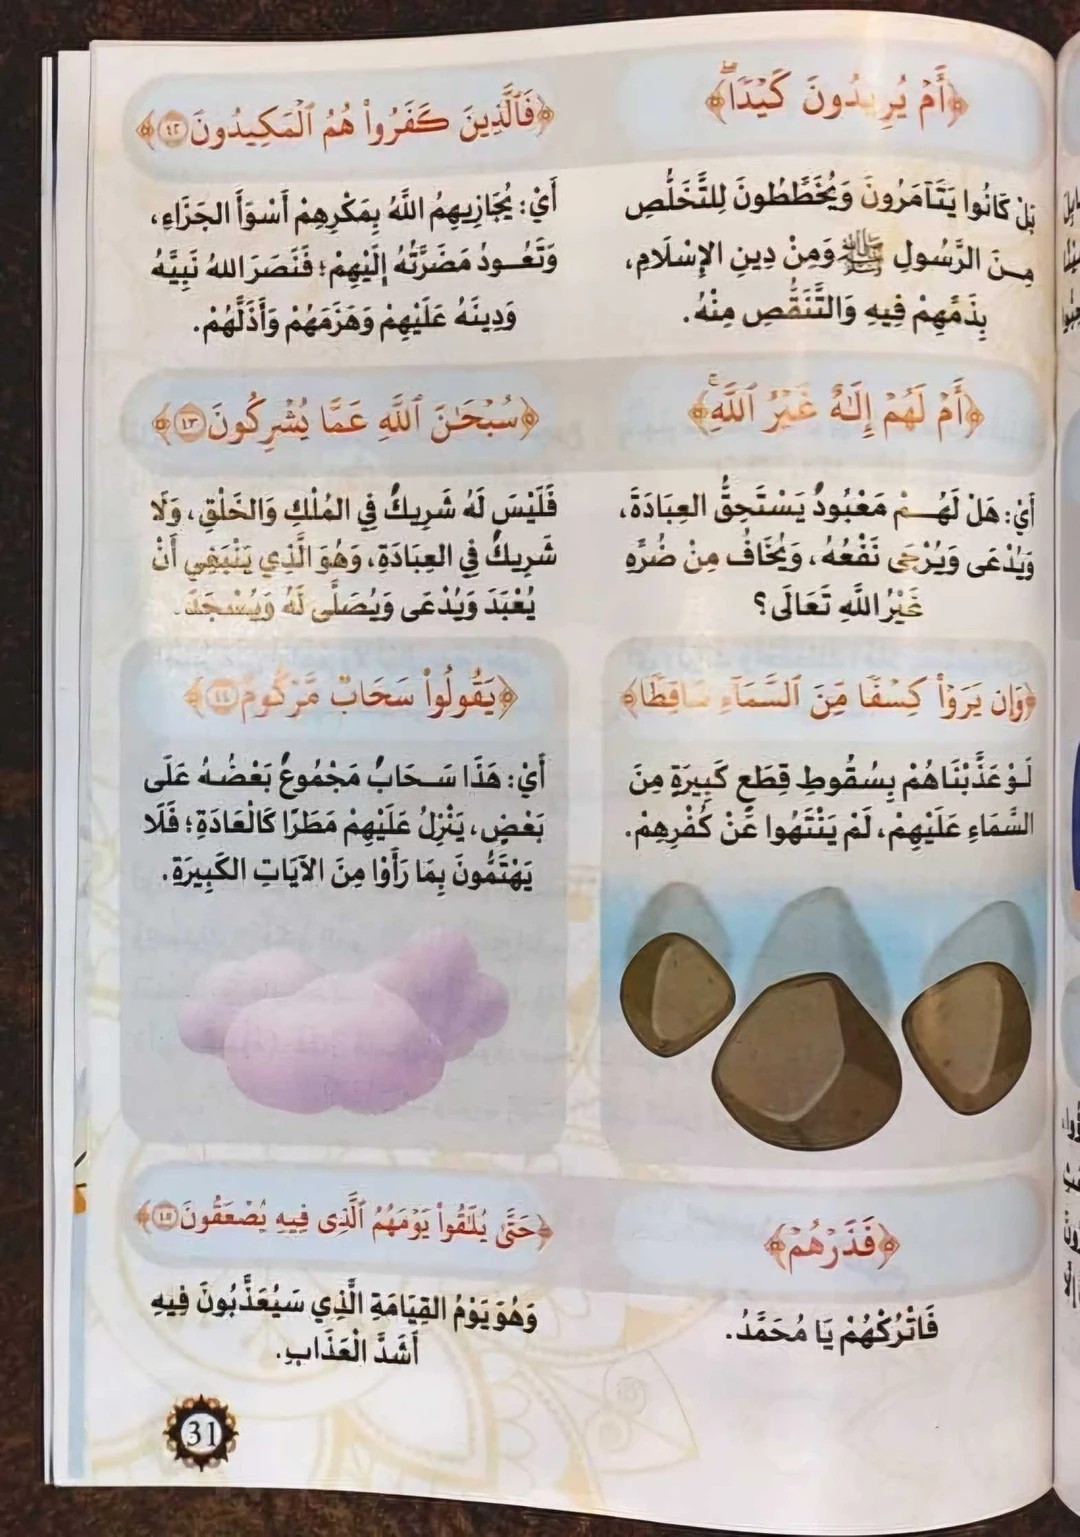 ﴿أَمۡ يُرِيدُونَ كَيۡدٗاۖ﴾
﴿فَٱلَّذِينَ كَفَرُواْ هُمُ ٱلۡمَكِيدُونَ ٤٢﴾
بَلْ كَانُوا يَتَآمَرُونَ وَيُخَطِّطُونَ لِلتَّخَلُّصِ
مِنَ الرَّسُولِ ﷺ وَمِنْ دِينِ الإِسْلَامِ،
بِذَمِّهِمْ فِيهِ وَالتَّنَقُّصِ مِنْهُ.
أَيْ: يُجَازِيهِمُ اللَّهُ بِمَكْرِهِمْ أَسْوَأَ الجَزَاءِ،
وَتَعُودُ مَضَرَّتُهُ إِلَيْهِمْ؛ فَنَصَرَ اللهُ نَبِيَّهُ
وَدِينَهُ عَلَيْهِمْ وَهَزَمَهُمْ وَأَذَلَّهُمْ.
﴿أَمۡ لَهُمۡ إِلَٰهٌ غَيۡرُ ٱللَّهِۚ﴾
﴿سُبۡحَٰنَ ٱللَّهِ عَمَّا يُشۡرِكُونَ ٤٣﴾
أَيْ: هَلْ لَهُمْ مَعْبُودٌ يَسْتَحِقُّ العِبَادَةَ،
وَيُدْعَى وَيُرْجَى نَفْعُهُ، وَيُخَافُ مِنْ ضُرِّهِ
غَيْرُ اللَّهِ تَعَالَى؟
فَلَيْسَ لَهُ شَرِيكٌ فِي المُلْكِ وَالخَلْقِ، وَلَا
شَرِيكٌ فِي العِبَادَةِ، وَهُوَ الَّذِي يَنْبَغِي أَنْ
يُعْبَدَ وَيُدْعَى وَيُصَلَّى لَهُ وَيُسْجَدَ.
﴿وَإِن يَرَوۡاْ كِسۡفٗا مِّنَ ٱلسَّمَآءِ سَاقِطٗا﴾
﴿يَقُولُواْ سَحَابٞ مَّرۡكُومٞ ٤٤﴾
لَوْ عَذَّبْنَاهُمْ بِسُقُوطِ قِطَعٍ كَبِيرَةٍ مِنَ
السَّمَاءِ عَلَيْهِمْ، لَمْ يَنْتَهُوا عَنْ كُفْرِهِمْ.
أَيْ: هَذَا سَحَابٌ مَجْمُوعٌ بَعْضُهُ عَلَى
بَعْضٍ، يَنْزِلُ عَلَيْهِمْ مَطَرًا كَالْعَادَةِ؛ فَلَا
يَهْتَمُّونَ بِمَا رَأَوْا مِنَ الآيَاتِ الكَبِيرَةِ.
﴿فَذَرۡهُمۡ﴾
﴿حَتَّىٰ يُلَٰقُواْ يَوۡمَهُمُ ٱلَّذِي فِيهِ يُصۡعَقُونَ ٤٥﴾
فَاتْرُكْهُمْ يَا مُحَمَّدُ.
وَهُوَ يَوْمُ القِيَامَةِ الَّذِي سَيُعَذَّبُونَ فِيهِ
أَشَدَّ الْعَذَابِ.
31